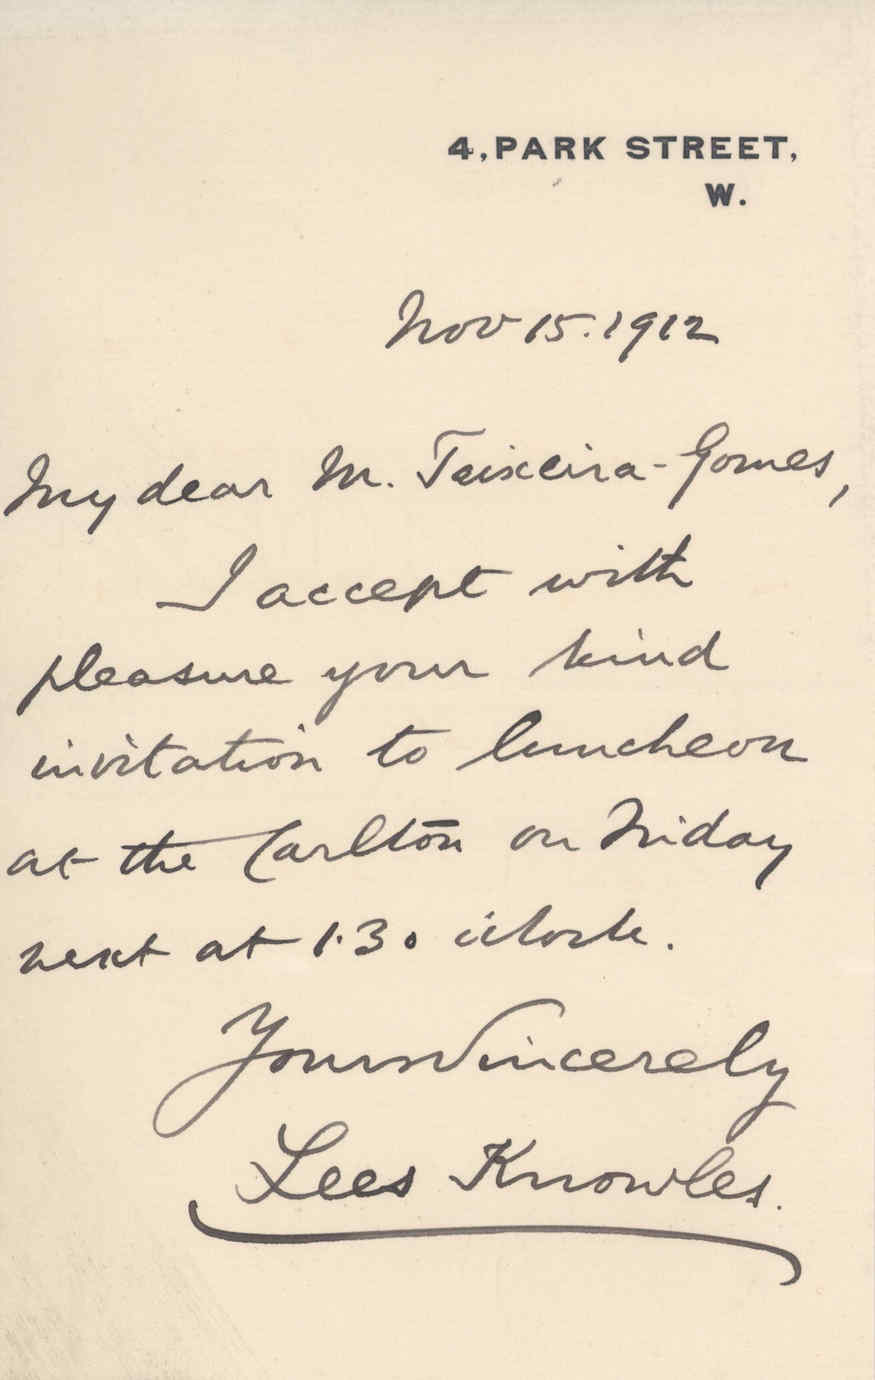 4, PARK STREET,
W.
Nov 15. 1912
My dear M. Teixeira-Gomes,
I accept with
pleasure your kind
invitation to luncheon
at the Carlton on Friday
next at 1.30 o'clock.
Yours Sincerely
Lees Knowles.